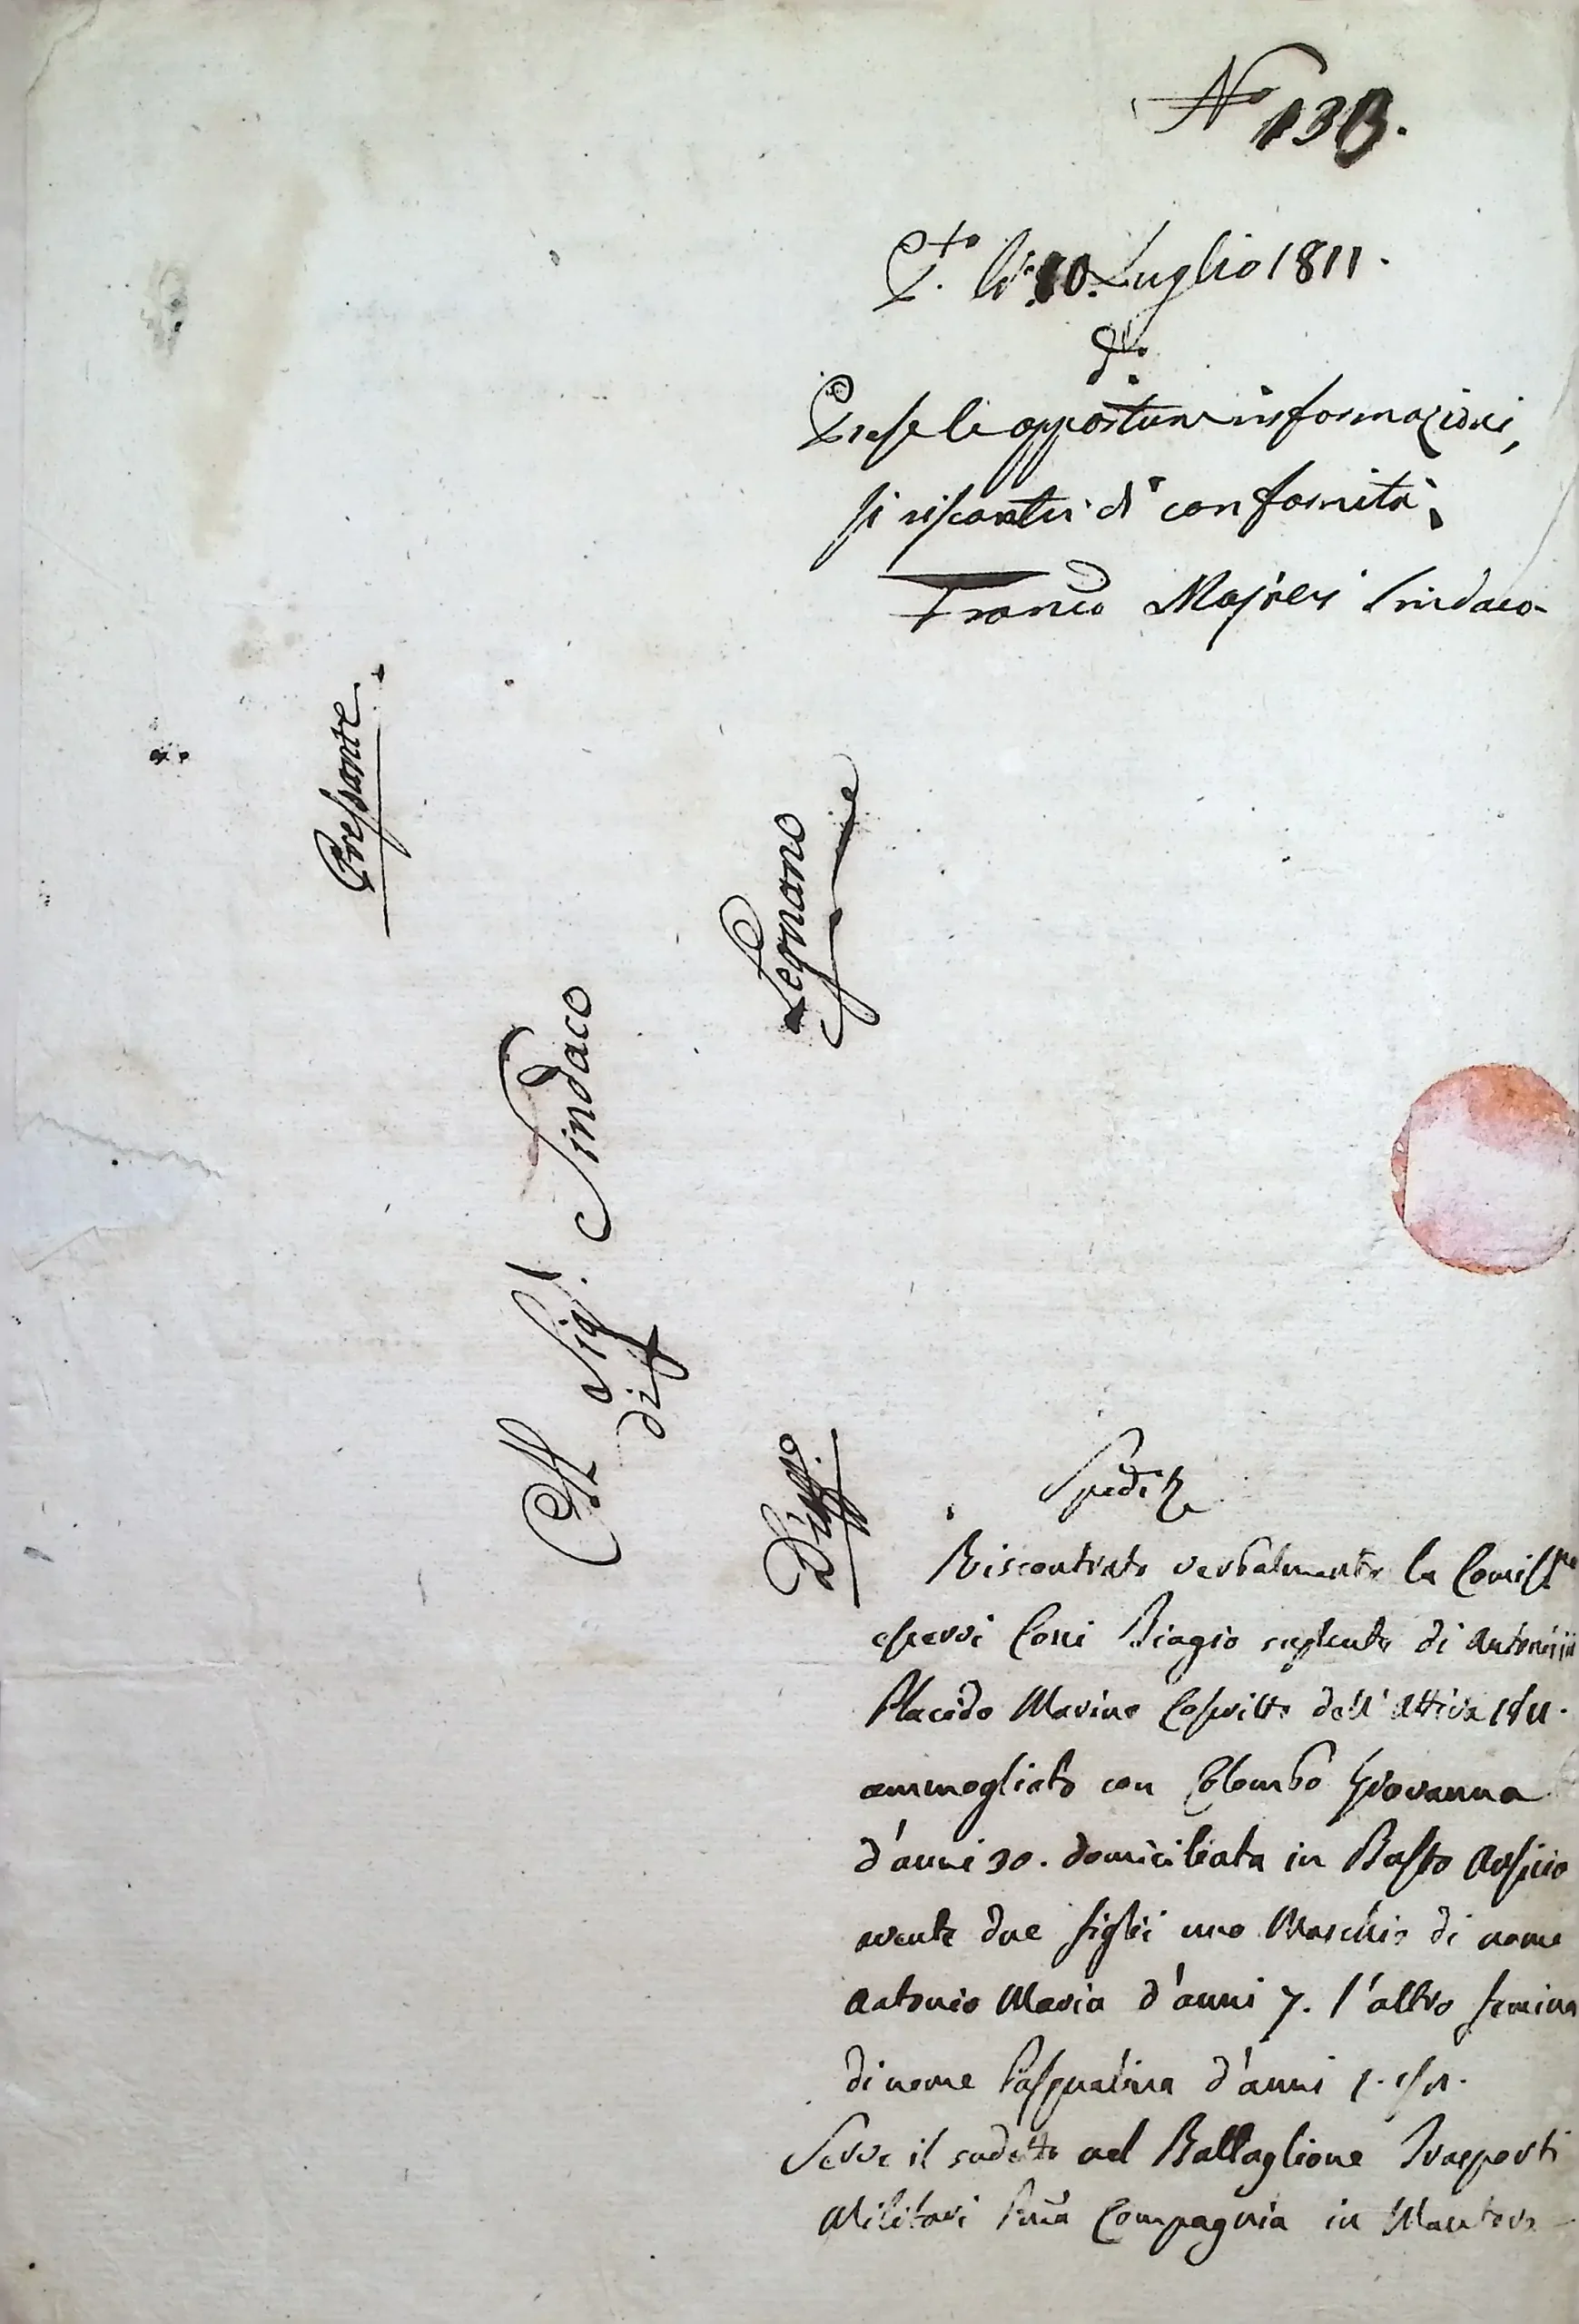 N.º 133.
P.to li 10. Luglio 1811.
d.
Prese le opportune informazioni,
si riscontri di conformità.
Fran.co Majneri Sindaco
Pressante.
Al Sig.r Sindaco
di
Legnano
D'Uff.o
Spedi
Riscontrato verbalmente la Comiss.ne
esservi Coni Biagio suplente di Antonini
Placido Marino Coscritto dell'attiva 1811.
ammogliato con Colombo Giovanna
d'anni 30. domiciliata in Busto Arsizio
avente due figli uno Maschio di nome
Antonio Maria d'anni 7. l'altro femina
di nome Pasqualina d'anni 1.
Serve il sudetto nel Battaglione Trasporti
Militari Prima Compagnia in Mantova